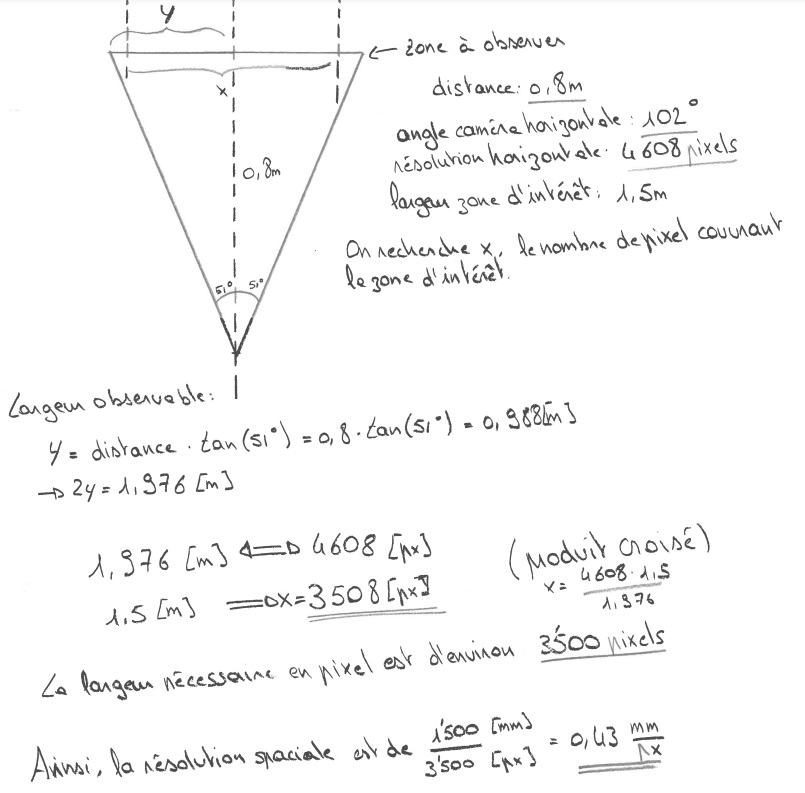 y
← zone à observer
x
distance: 0,8m
angle caméra horizontale: 102°
résolution horizontale: 4608 pixels
0,8m
largeur zone d'intérêt: 1,5m
On recherche x, le nombre de pixel couvrant
la zone d'intérêt.
51° 51°
Largeur observable:
y = distance · tan(51°) = 0,8 · tan(51°) = 0,988[m]
→ 2y = 1,976 [m]
1,976 [m] ⇔ 4608 [px]
(produit croisé)
1.5 [m] ⇒ x = 3508 [px]
x = 4608 · 1,5 / 1,976
La largeur nécessaire en pixel est d'environ 3'500 pixels
Ainsi, la résolution spaciale est de 1'500 [mm] / 3'500 [px] = 0,43 mm/px